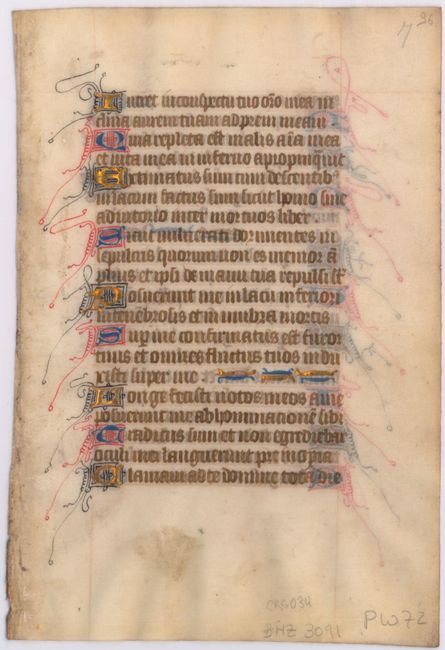 7 96
Intret in conspectu tuo oro mea in
clina aurem tuam ad precem meam
Quia repleta est malis aia mea
et vita mea in inferno apropinquit
Estimatus sum cum descentib
in lacum factus sum sicut homo sine
adiutorio inter mortuos liber
Sicut vulnerati dormientes in
sepulcris quorum non es memor am
plius et ipsi de manu tua repulsi st
Posuerunt me in lacu inferiori
in tenebrosis et in umbra mortis
Super me confirmatus est furor
tuus et omnes fluctus tuos indu
xisti super me
Longe fecisti notos meos a me
posuerunt me abhominacione sibi
Traditus sum et non egrediebar
oculi mei languerunt pre inopia
Clamavi ad te domine tota die
CRG034
BHZ 3091
PW72